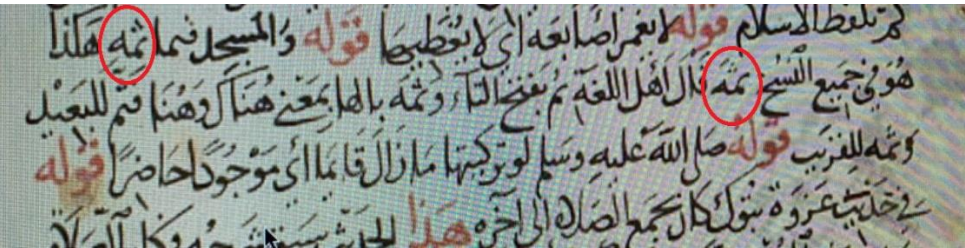 الاسلام قوله لا يغمر اصابعه اي لا يغطيها قوله والمسجد فيما ثمه هكذا
هو في جميع النسخ ثمه قال اهل اللغة ثم بفتح الثاء وثمه بالها بمعنى هناك وهنا فثم للبعيد
وثمه للقريب قوله صلى الله عليه وسلم لو تركتيها ما زال قايما اي موجودا حاضرا قوله
في حديث غزوة تبوك كان يجمع الصلاه الى آخره هذا الحديث